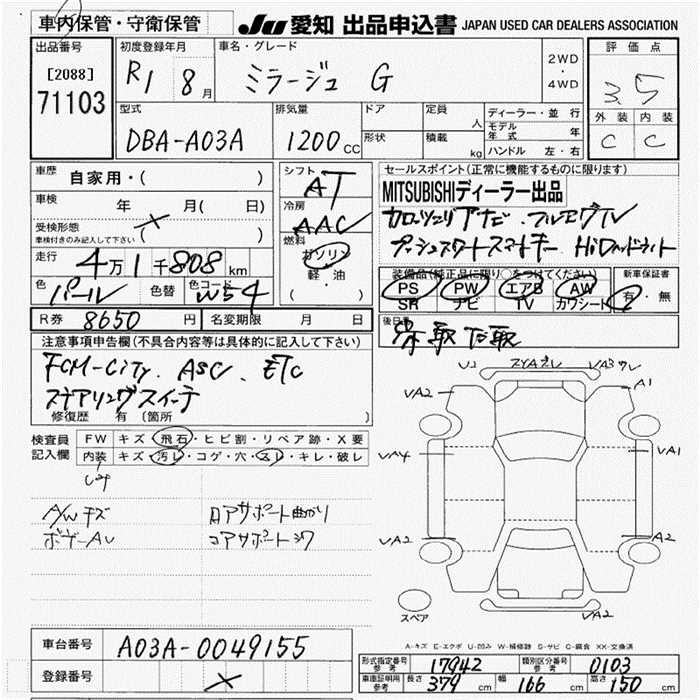 車内保管・守衛保管
JU 愛知 出品申込書 JAPAN USED CAR DEALERS ASSOCIATION
出品番号
[2088]
71103
初度登録年月
R1 8月
車名・グレード
ミラージュ G
2WD
・
4WD
評価点
3.5
外装 内装
C C
型式
DBA-A03A
排気量
1200cc
ドア
形状
定員 人
積載 kg
ディーラー・並行
モデル年式 年
ハンドル 左・右
車歴 自家用・( )
車検 年 月( 日)
受検形態
車検付きのみ記入して下さい ( )
走行 4万1千808km
色 パール 色替 色コード W54
R券 8650円 名変期限 月 日
シフト
AT
冷房
AAC
燃料
ガソリン
軽・油
( )
セールスポイント(正常に機能するものに限ります)
MITSUBISHIディーラー出品
プッシュスタートスマートキー HiDヘッドライト
装備品(純正品に限り○をつけてください)
PS PW エアB AW
SR ナビ TV カワシート
新車保証書
有・無
後日品
注意事項申告欄(不具合内容等は具体的に記入して下さい)
FCM-City. ASC. ETC
ステアリングスイッチ
修復歴 有 (箇所 )
検査員記入欄
FW キズ・飛石・ヒビ割・リペア跡・X要
内装 キズ・汚レ・コゲ・穴・スレ・キレ・破レ
A/Wキズ
ボデーAU
ロアサポート曲がり
コアサポート
UJ VA3
VA2 A1
VA4 VA1
VA2 A2
VA2
スペア
A-キズ E-エクボ U-凹み W-補修跡 S-サビ C-腐食 XX-交換済
車台番号 A03A-0049155
登録番号
型式指定番号 参考 17942 類別区分番号 参考 0103
車庫証明用 参考 長さ 379cm 幅 166cm 高さ 150cm